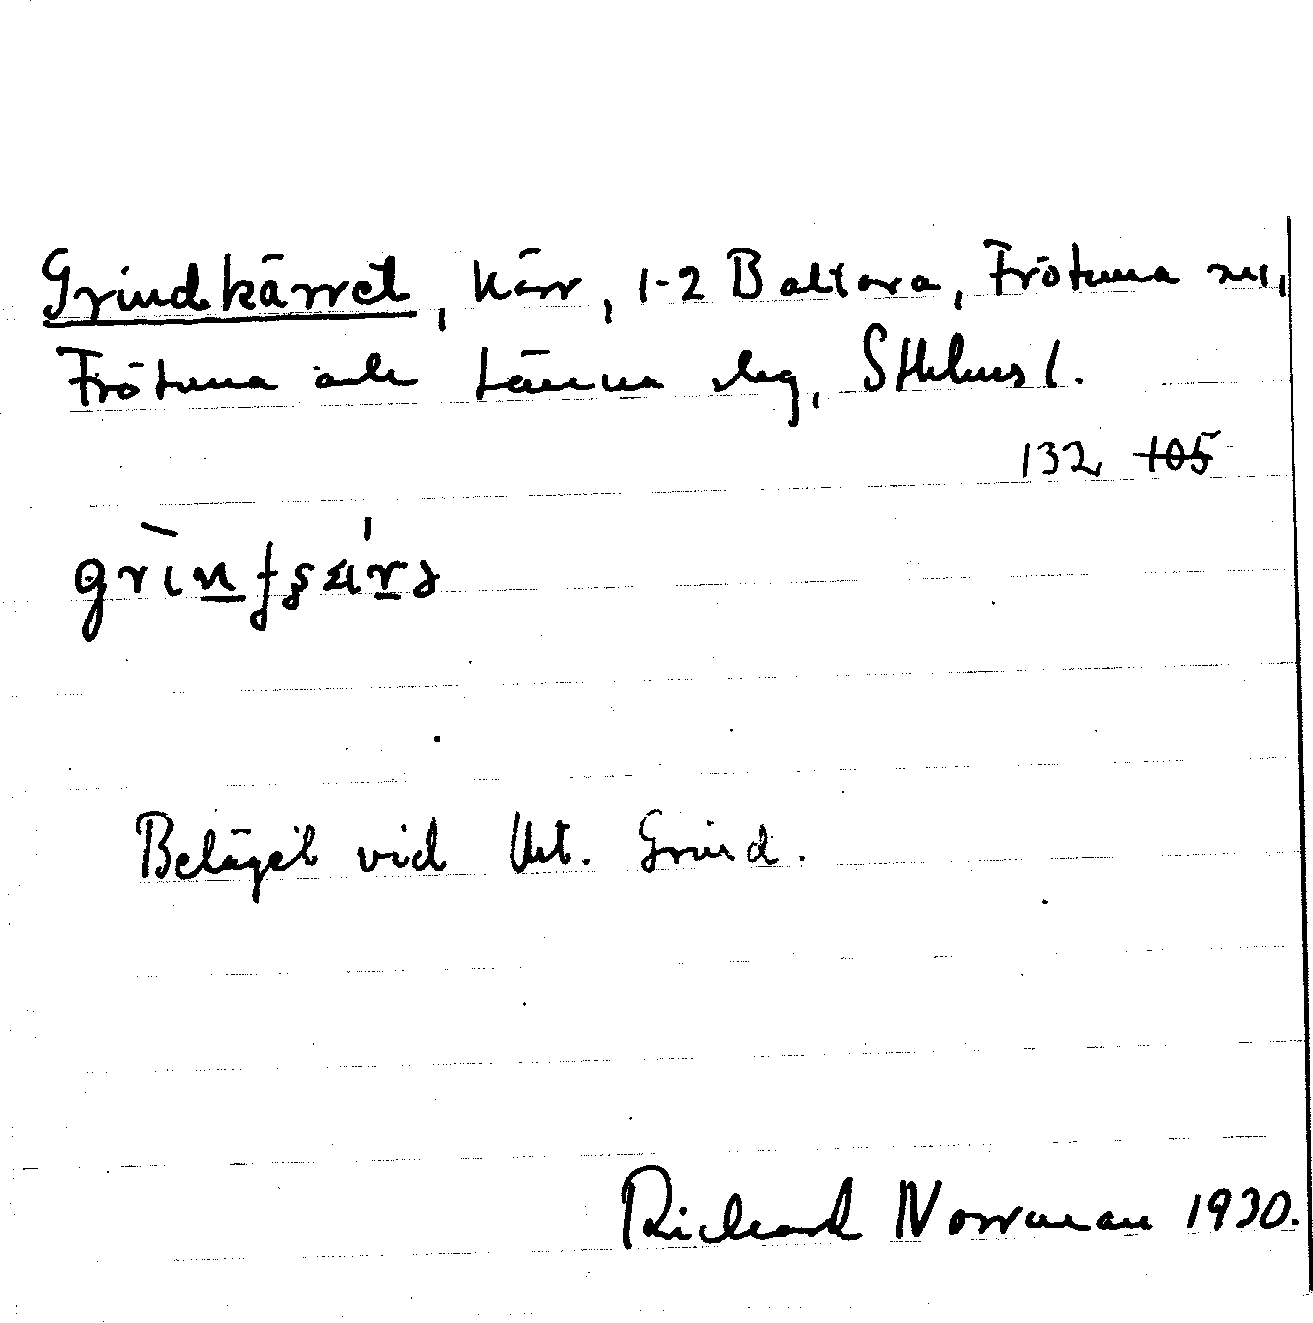 Grindkärret, kärr, 1-2 Baltora, Frötuna sn,
Frötuna och Länna slg, Sthlms l.
132 105
Beläget vid Urt. Grind.
Richard Norrman 1930.